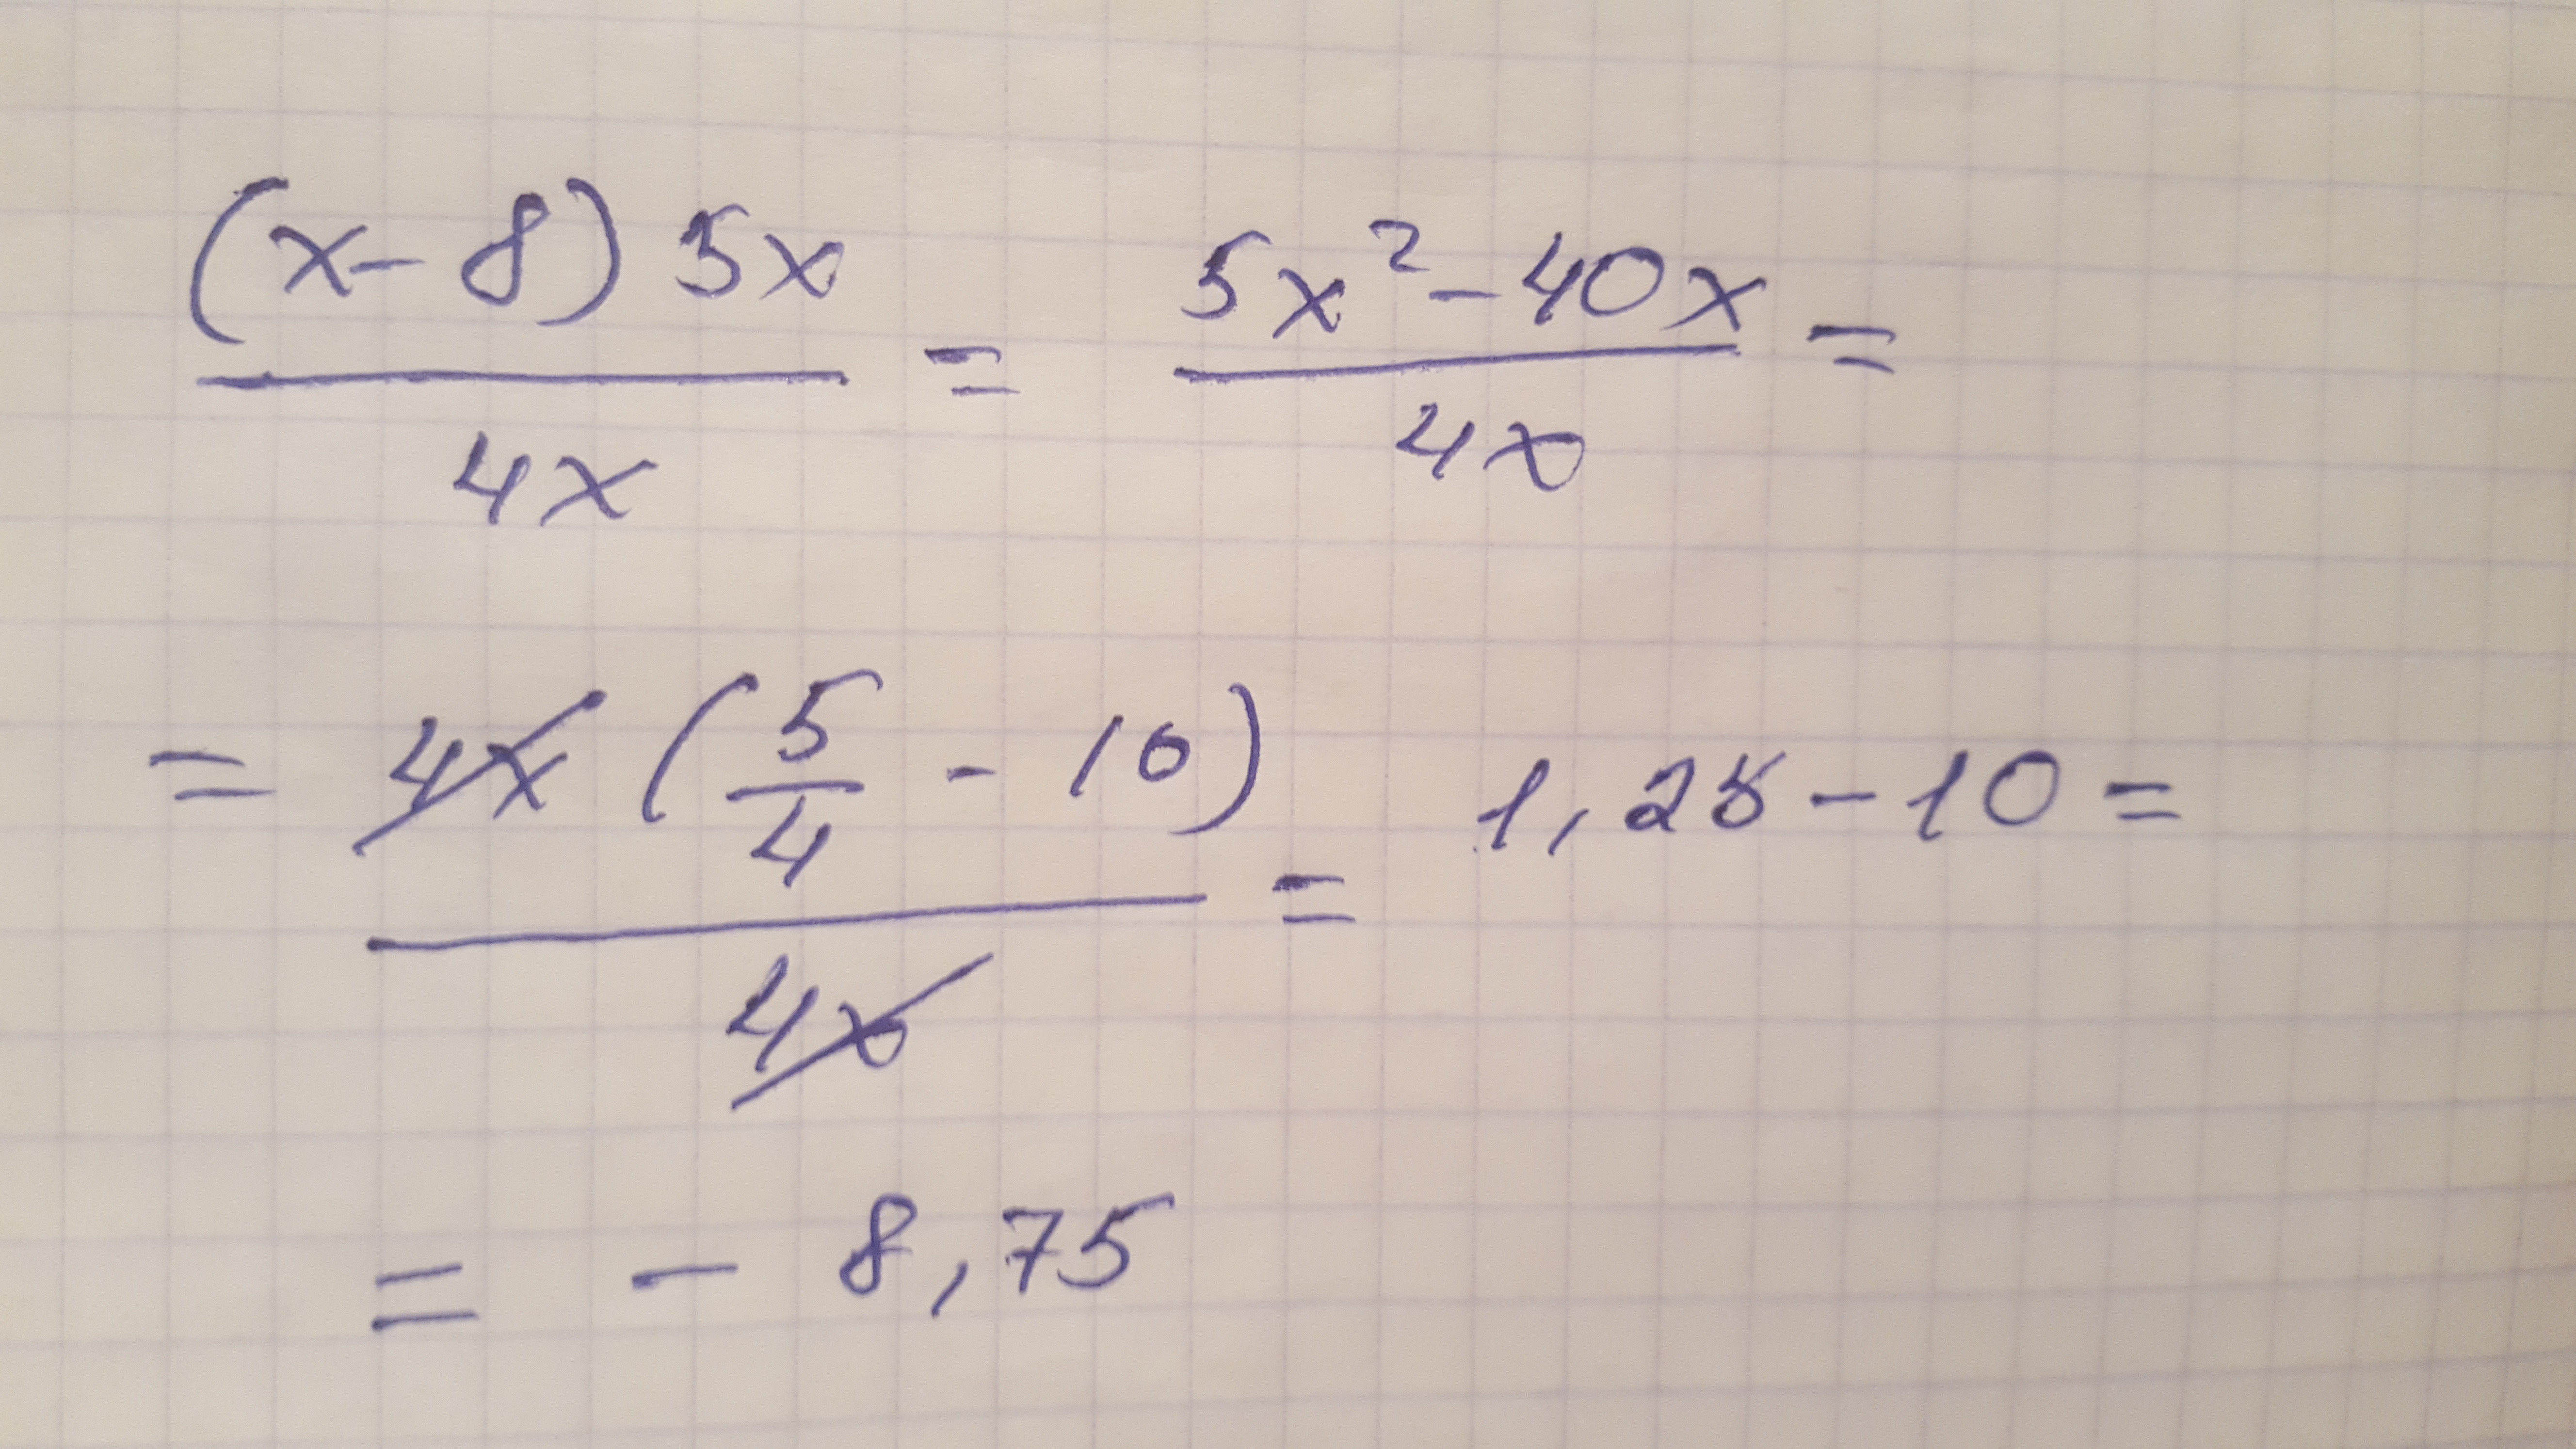 (x-8) 5x / 4x = 5x² - 40x / 4x =
= 4x (5/4 - 10) / 4x = 1,25 - 10 =
= - 8,75